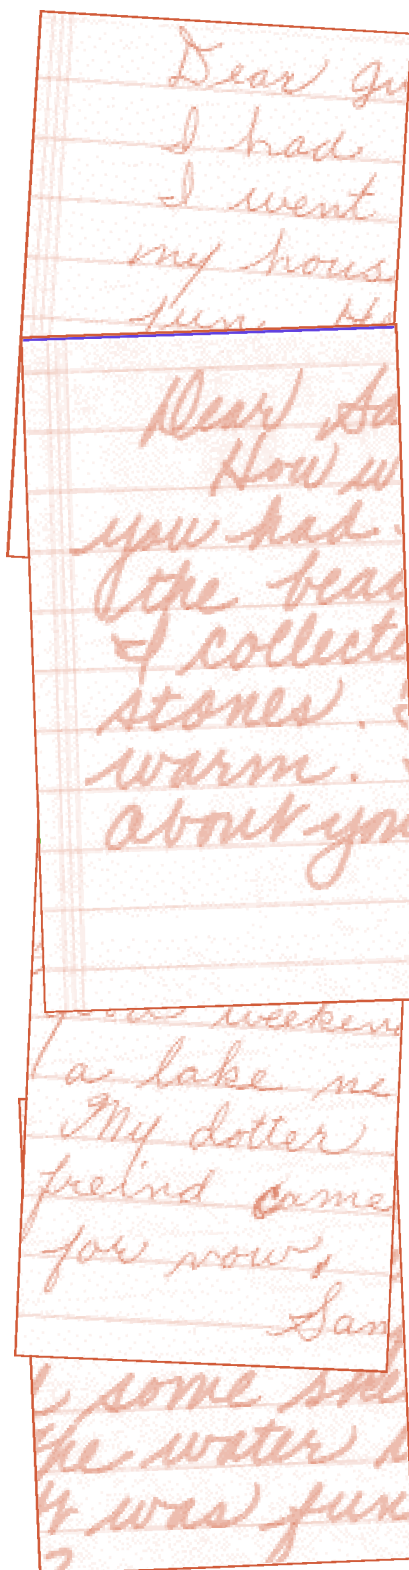 Dear
I had
I went
my hous
fun.
Dear Sa
How w
you had.
the beac
I collecte
stones.
warm.
about you
weeken
a lake ne
My dotter
freind came
for now,
Sam
some she
the water
It was fun